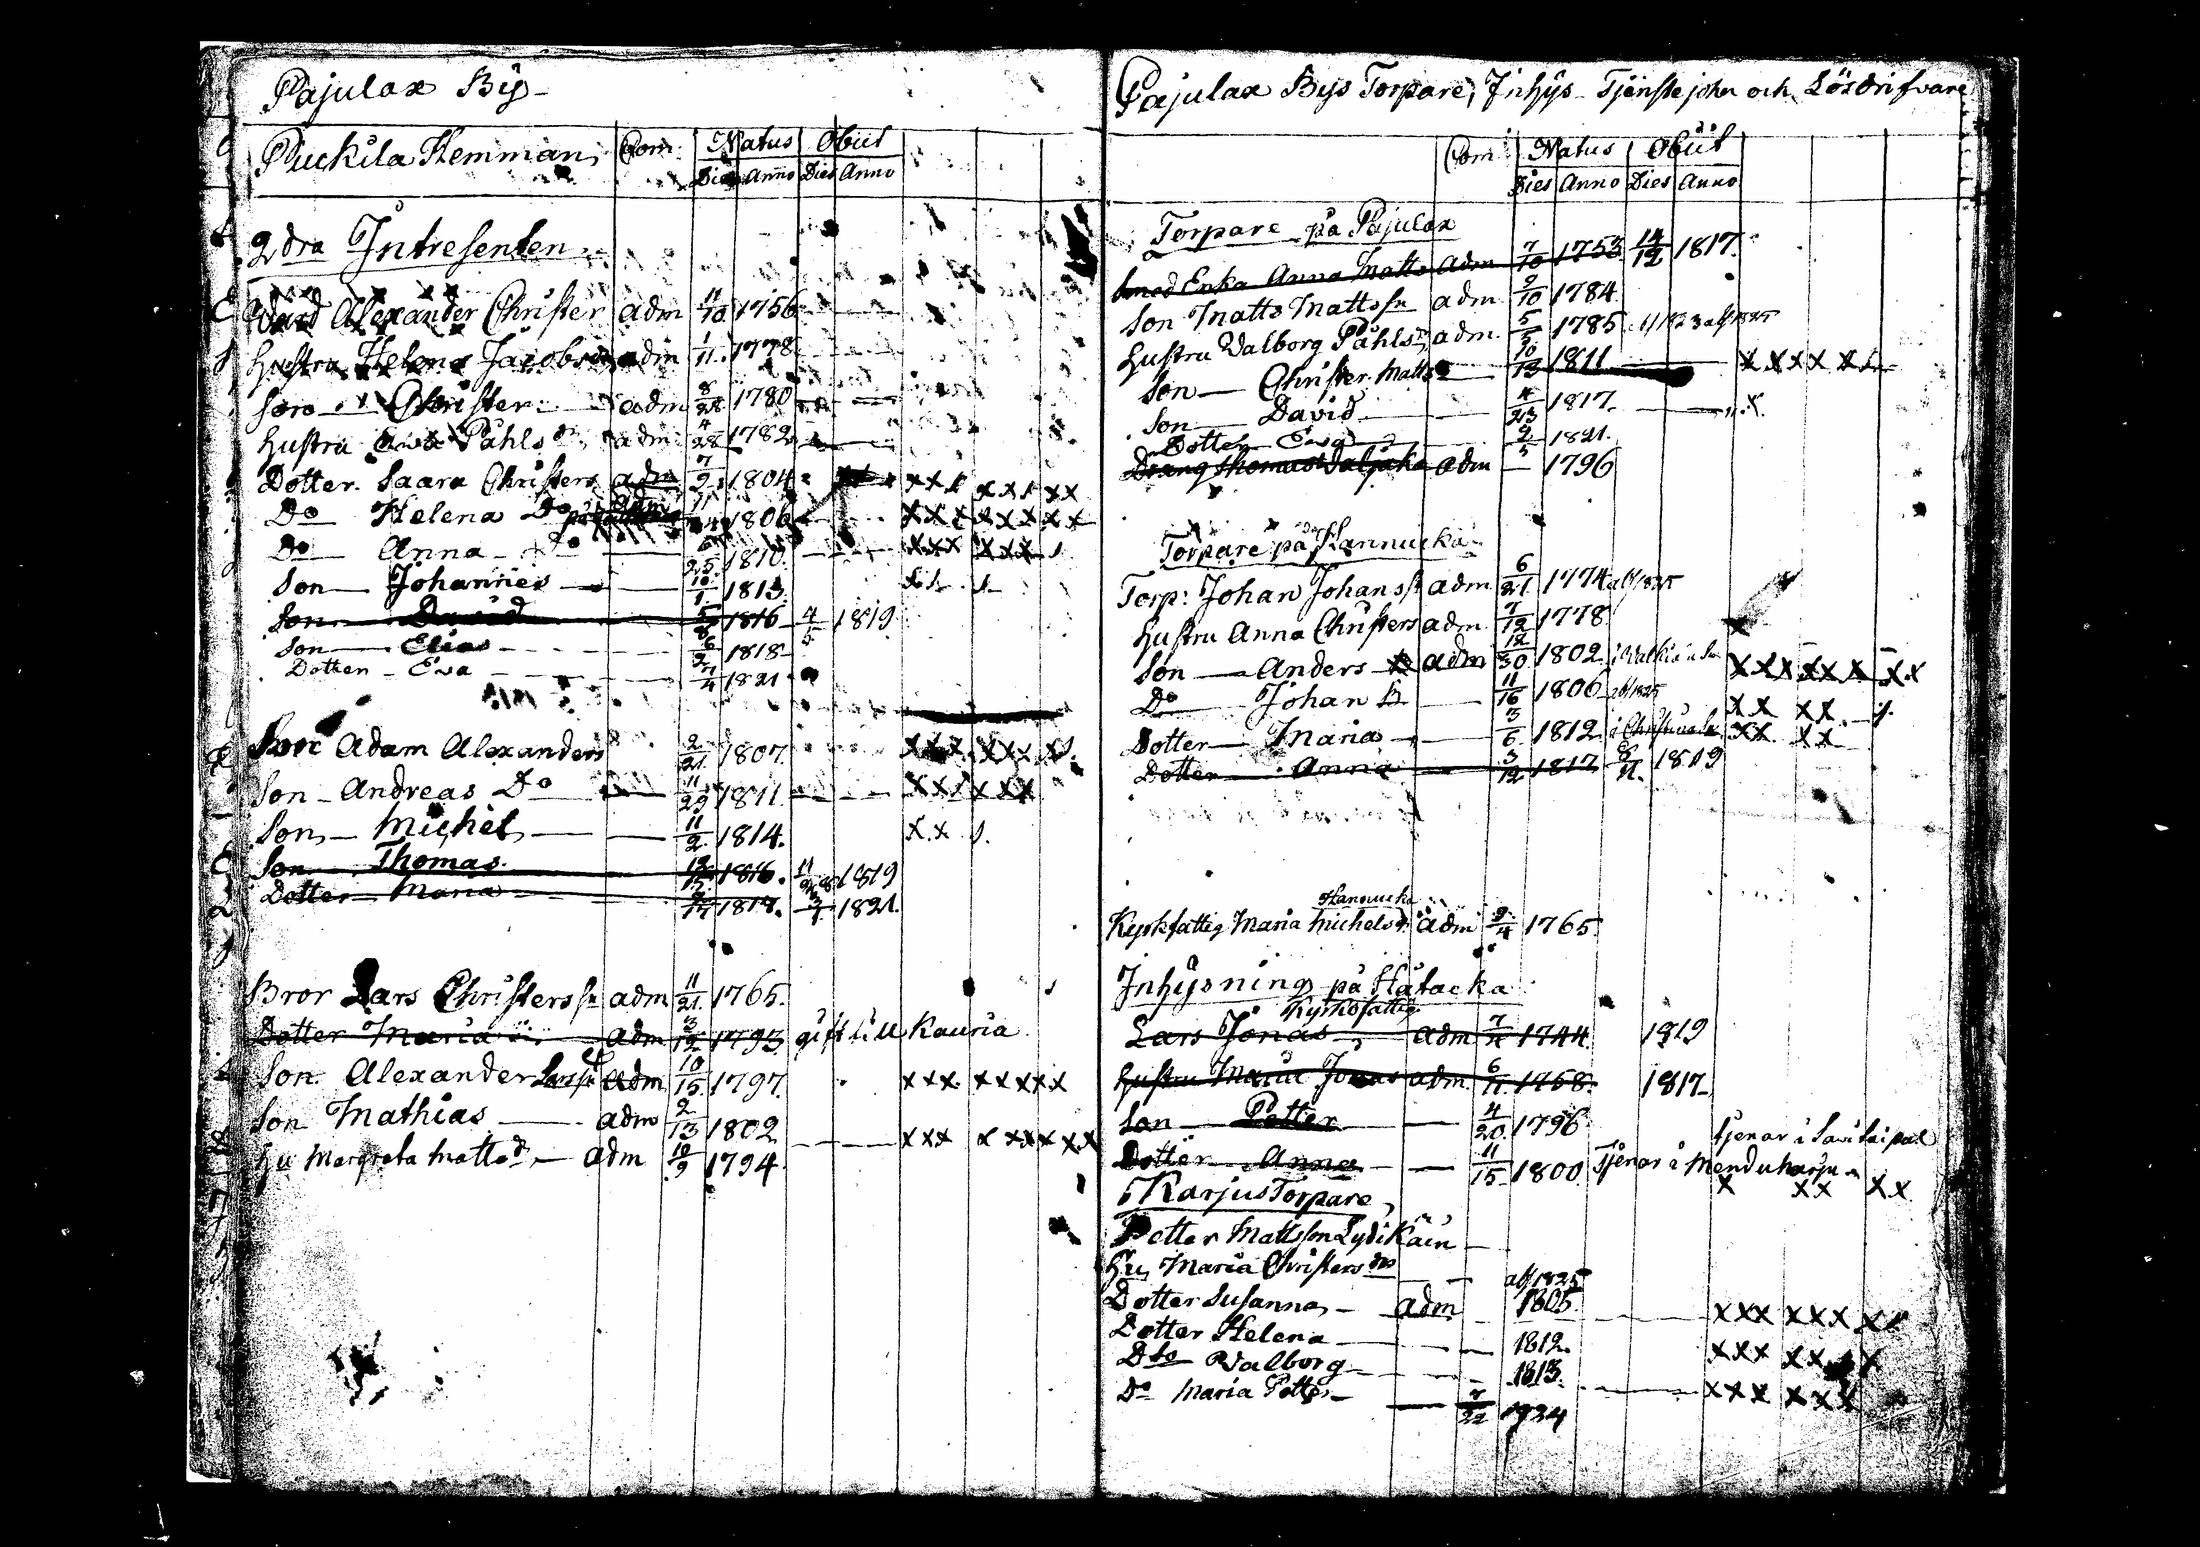 Pajulax By
Puckila Hemman Com: Natus Obiit
Dies Anno Dies Anno
2dra Intresenten
Wärd Alexander Christer adm 11/10 1756
Hustru Helena Jacobs adm 1/11 1778
Son Christer adm 8/28 1780
Hustru Påhls dr adm 4/28 1782
Dotter Saara Christers adm 7/9 1804
Do Helena Do 1806 xxx xxx xx
Do Anna Do 6/25 1810 xxx xxx
Son Johannes 10/1 1813
Son David 1816 4/5 1819
Son Elias 1818
Dotter Eva 1821
Son Adam Alexanders 2/21 1807
Son Andreas Do 11/29 1811 xxx xxx
Son Michel 11/2 1814 x x
Son Thomas 1816 1819
Dotter Maria 1818 1821
Bror Lars Christers sn adm 11/21 1765
Dotter Maria adm 3/12 1793 gift till Kauria
Son Alexander Lars sn adm 10/15 1797 xxx xxxxx
Son Mathias adm 2/13 1802
Hu Margreta Matts dr adm 10/9 1794 xxx x xxx xx
Pajulax Bys Torpare, Inhys Tjenstejohn och Lösdrifvare
Com: Natus Obiit
Dies Anno Dies Anno
Torpare på Pajulax
Smed Enka Anna Matts adm 7/10 1753 14/12 1817
Son Matts Matts sn adm 9/10 1784
Hustru Valborg Påhls dr adm 1785
Son Christer Matts 10/13 1811
Son David 4/23 1817
Dotter Eva 2/5 1821
Dräng Thomas adm 1796
Torpare på Hannucka
Torp: Johan Johans sn adm 6/21 1774 abs 1825
Hustru Anna Christers adm 7/12 1778
Son Anders adm 12/30 1802
Do Johan 11/16 1806 abs 1825
Dotter Maria 3/6 1812
Dotter Anna 3/12 1817 1819
Hanoucka
Kyrkfattig Maria Michels dr adm 9/4 1765
Inhysning på Hätacka
Kyrkofattig
Lars Jonas adm 1744 1819
Hustru Maria Jonas adm 6/11 1758 1817
Son Petter 4/20 1796 tjenar i Savitaipal
Dotter Anna 11/15 1800 Tjenar i Menduharju
Karjus Torpare
Petter Mattsson Lydikäin
Hu Maria Christers dr
abs 1825
Dotter Susanna adm 1805
Dotter Helena 1812
Dto Valborg 1813
Do Maria Petter 7/22 1824